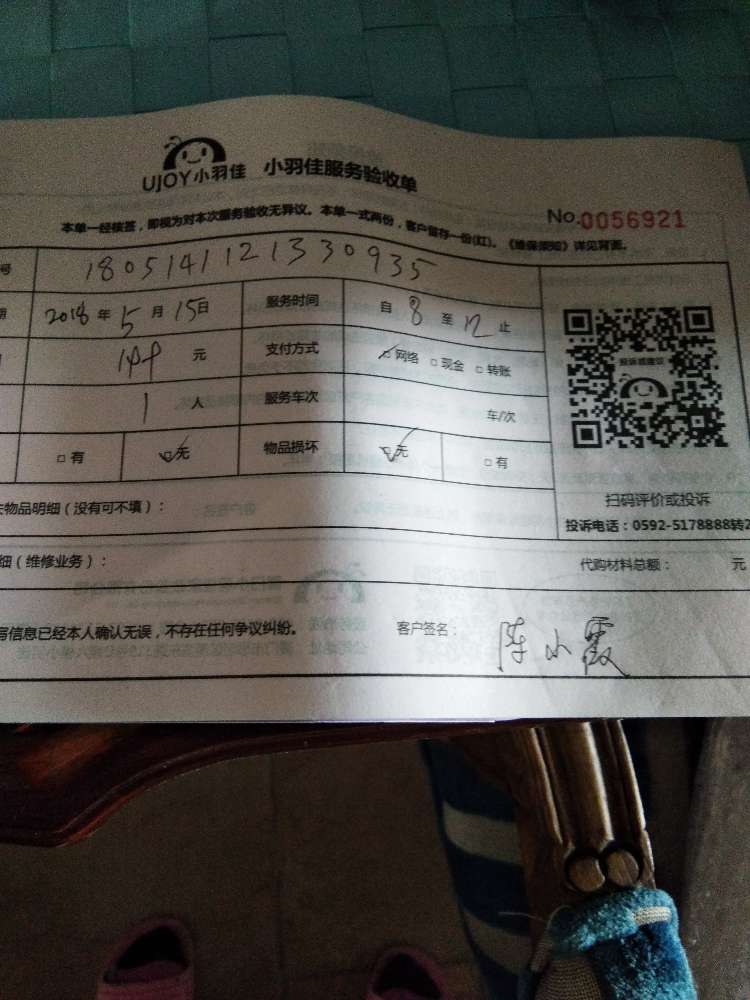 UJOY小羽佳 小羽佳服务验收单
No.0056921
本单一经核签，即视为对本次服务验收无异议。本单一式两份，客户留存一份(红)。《维保须知》详见背面。
号 180514112133 0935
期 2018年5月15日 服务时间 自8至12止
144元 支付方式 网络 现金 转账
投诉或建议
1人 服务车次 车/次
有 无 物品损坏 无 有
扫码评价或投诉
物品明细（没有可不填）：
投诉电话：0592-5178888转2
细（维修业务）： 代购材料总额： 元
写信息已经本人确认无误，不存在任何争议纠纷。 客户签名：陈小霞